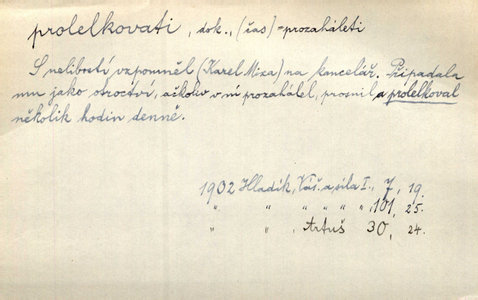 prolelkovati, dok., (čas) = prozaháleti
S nelibostí vzpomněl (Karel Míza) na kancelář. Připadala
mu jako otroctví, ačkoliv v ní prozahálel, prosnil a prolelkoval
několik hodin denně.
1902 Hladík, Váš. a síla I., 7, 19.
" " " " " " 101, 25.
" " Artuš 30, 24.